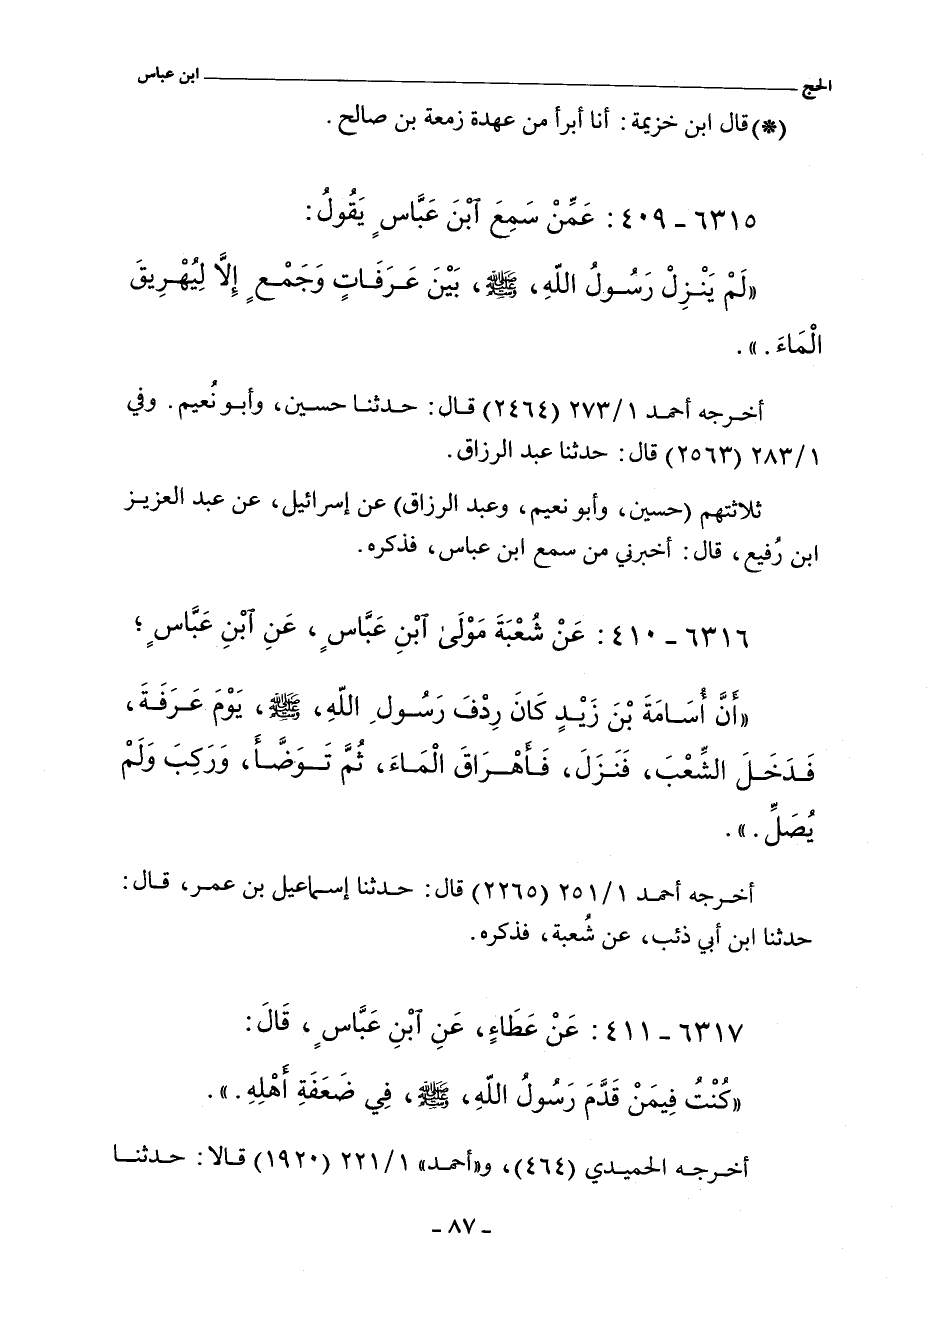 الحج ابن عباس
(*) قال ابن خزيمة : أنا أبرأ من عهدة زمعة بن صالح .
٦٣١٥ - ٤٠٩ : عَمَّنْ سَمِعَ ٱبْنَ عَبَّاسٍ يَقُولُ :
«لَمْ يَنْزِلْ رَسُولُ اللّهِ، ﷺ، بَيْنَ عَرَفَاتٍ وَجَمْعٍ إِلَّا لِيُهْرِيقَ
الْمَاءَ . » .
أخرجه أحمد ٢٧٣/١ (٢٤٦٤) قال : حدثنا حسين، وأبو نُعيم . وفي
٢٨٣/١ (٢٥٦٣) قال : حدثنا عبد الرزاق .
ثلاثتهم (حسين، وأبو نعيم، وعبد الرزاق) عن إسرائيل، عن عبد العزيز
ابن رُفيع، قال : أخبرني من سمع ابن عباس، فذكره .
٦٣١٦ - ٤١٠ : عَنْ شُعْبَةَ مَوْلَىٰ ٱبْنِ عَبَّاسٍ ، عَنِ ٱبْنِ عَبَّاسٍ ؛
«أَنَّ أُسَامَةَ بْنَ زَيْدٍ كَانَ رِدْفَ رَسُولِ اللّهِ، ﷺ، يَوْمَ عَرَفَةَ،
فَدَخَلَ الشِّعْبَ، فَنَزَلَ، فَأَهْرَاقَ الْمَاءَ، ثُمَّ تَوَضَّأَ، وَرَكِبَ وَلَمْ
يُصَلِّ . » .
أخرجه أحمد ٢٥١/١ (٢٢٦٥) قال : حدثنا إسماعيل بن عمر، قال :
حدثنا ابن أبي ذئب، عن شُعبة، فذكره .
٦٣١٧ - ٤١١ : عَنْ عَطَاءٍ، عَنِ ٱبْنِ عَبَّاسٍ ، قَالَ :
«كُنْتُ فِيمَنْ قَدَّمَ رَسُولُ اللّهِ، ﷺ، فِي ضَعَفَةِ أَهْلِهِ . » .
أخرجه الحميدي (٤٦٤)، و«أحمد» ٢٢١/١ (١٩٢٠) قالا : حدثنا
- ٨٧ -